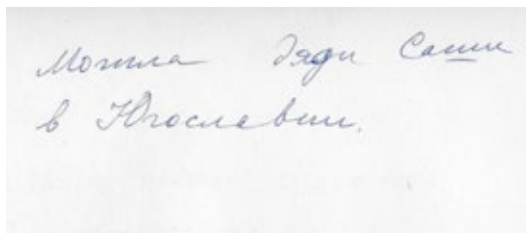 Могила дяди Саши
в Югославии.